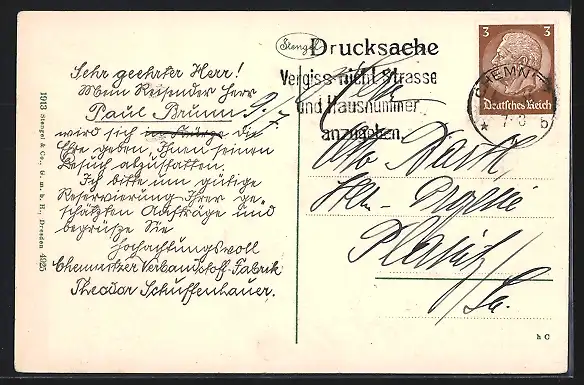 Stengel
Drucksache
Vergiss nicht Strasse
und Hausnummer
anzugeben
3 3
Deutsches Reich
CHEMNITZ
* 7-8 b
Sehr geehrter Herr!
Mein Reisender Herr
Paul Brunn
wird sich die
Ehre geben, Ihnen seinen
Besuch abzustatten.
Ich bitte um gütige
Reservierung Ihrer ge-
schätzten Aufträge und
begrüsse Sie
hochachtungsvoll
Chemnitzer Verbandstoff-Fabrik
Theodor Schuffenhauer.
1913 Stengel & Co., G. m. b. H., Dresden
Herrn
Otto
Drogerie
Sa.
h C